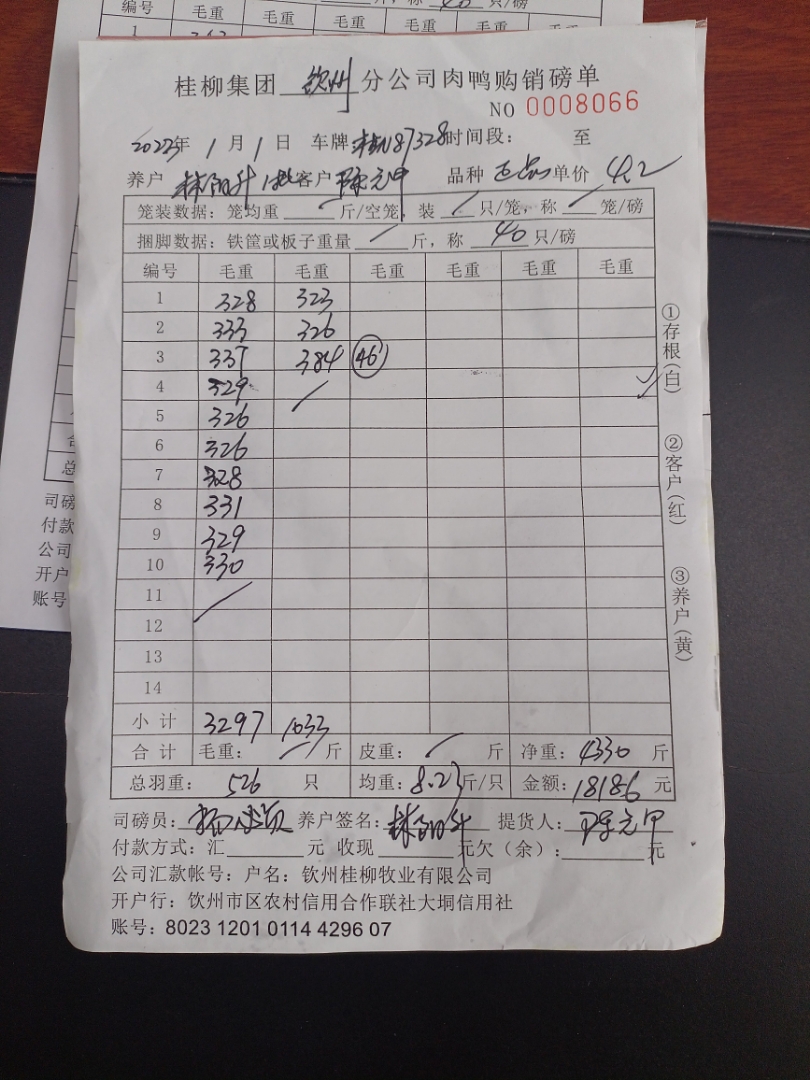 编号 毛重 毛重 毛重 毛重 毛重
桂柳集团 钦州 分公司肉鸭购销磅单
NO 0008066
2023年 1 月 1 日 车牌 87328 时间段： 至
养户 林阳升 客户 陈元甲 品种 正品 单价 4.2
笼装数据：笼均重 / 斤/空笼，装 / 只/笼，称 / 笼/磅
捆脚数据：铁筐或板子重量 / 斤，称 40 只/磅
编号 毛重 毛重 毛重 毛重 毛重 毛重
1 328 323
2 333 326
3 337 384 46
4 329 /
5 326
6 326
7 328
8 331
9 329
10 330
11 /
12
13
14
小计 3297 1033
合计 毛重： / 斤 皮重： / 斤 净重：4330 斤
总羽重： 526 只 均重：8.23 斤/只 金额：18186 元
司磅员： 养户签名：林阳升 提货人：陈元甲
付款方式：汇 元 收现 元欠（余）： 元
公司汇款帐号：户名：钦州桂柳牧业有限公司
开户行：钦州市区农村信用合作联社大垌信用社
账号：8023 1201 0114 4296 07
①存根（白）
②客户（红）
③养户（黄）
司磅
付款
公司
开户
账号